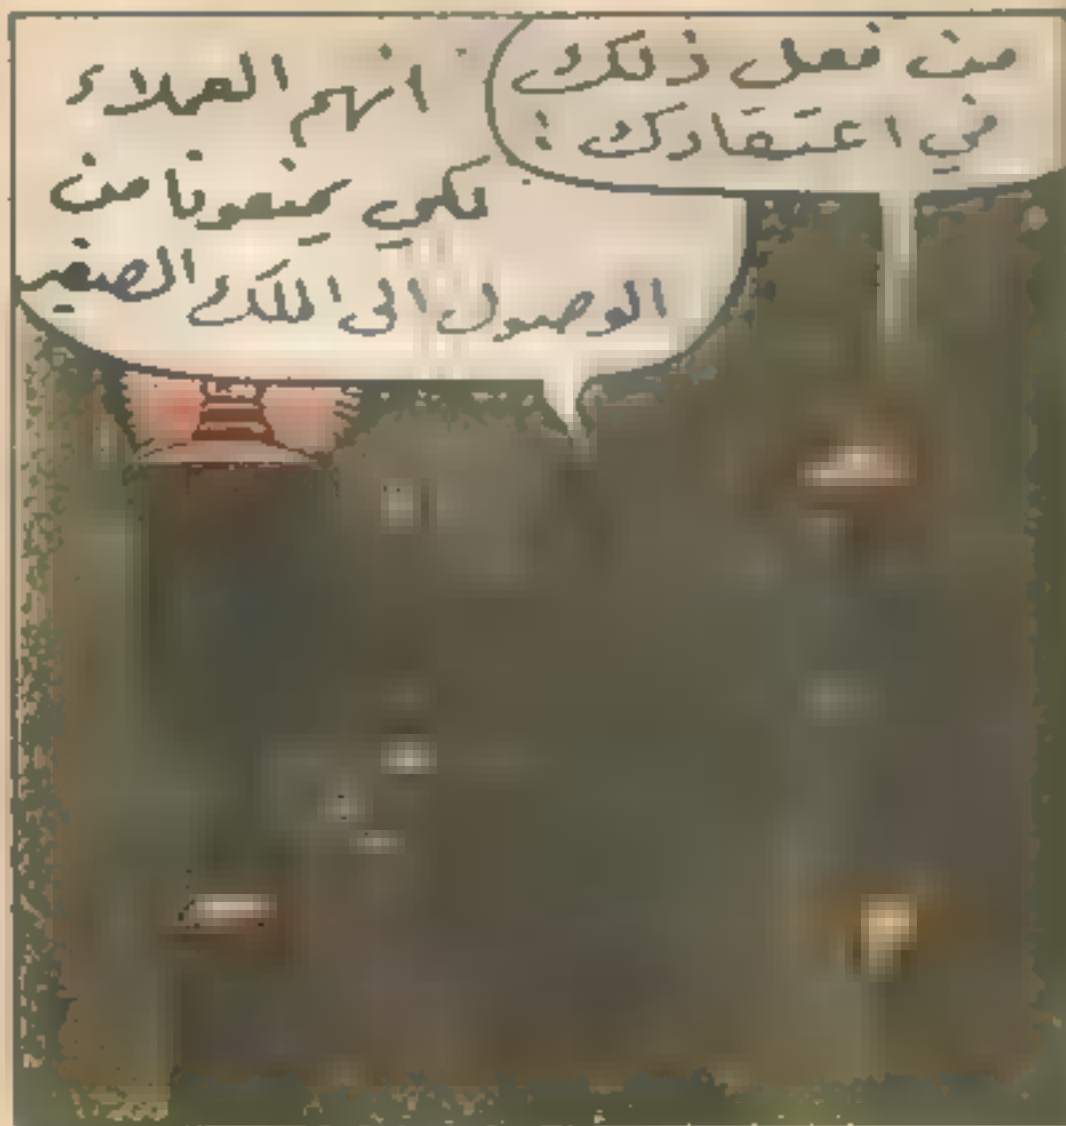 من فعل ذلك
في اعتقادك :
انهم العملاء
لكي يمنعونا من
الوصول الى الملك الصغير